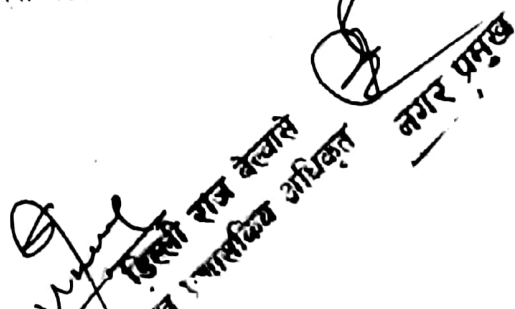 डिल्ली राज बेल्वासे
प्रशासकिय अधिकृत
नगर प्रमुख